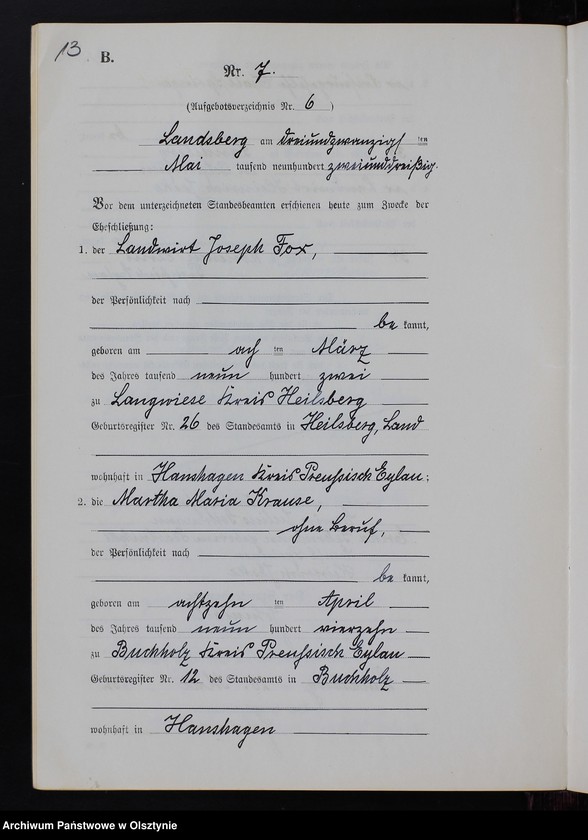 13 B.
Nr. 7.
(Aufgebotsverzeichnis Nr. 6 )
Landsberg am dreiundzwanzigs ten
Mai tausend neunhundert zweiunddreißig.
Vor dem unterzeichneten Standesbeamten erschienen heute zum Zwecke der
Eheschließung:
1. der Landwirt Joseph Fox,
der Persönlichkeit nach
be kannt,
geboren am ach ten März
des Jahres tausend neun hundert zwei
zu Langwiese Kreis Heilsberg
Geburtsregister Nr. 26 des Standesamts in Heilsberg, Land
wohnhaft in Hanshagen Kreis Preußisch Eylau;
2. die Martha Maria Krause,
ohne Beruf,
der Persönlichkeit nach
be kannt,
geboren am achtzehn ten April
des Jahres tausend neun hundert vierzehn
zu Buchholz Kreis Preußisch Eylau
Geburtsregister Nr. 12 des Standesamts in Buchholz
wohnhaft in Hanshagen
Archiwum Państwowe w Olsztynie